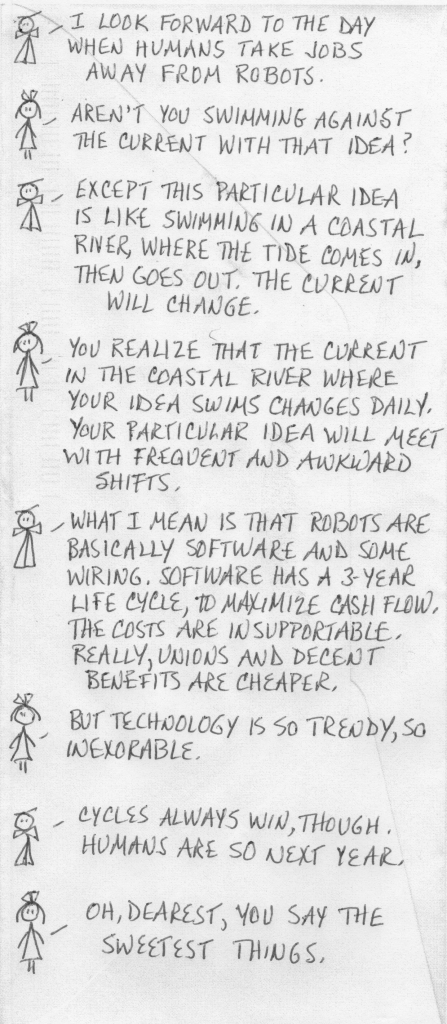 I LOOK FORWARD TO THE DAY
WHEN HUMANS TAKE JOBS
AWAY FROM ROBOTS.
AREN'T YOU SWIMMING AGAINST
THE CURRENT WITH THAT IDEA?
EXCEPT THIS PARTICULAR IDEA
IS LIKE SWIMMING IN A COASTAL
RIVER, WHERE THE TIDE COMES IN,
THEN GOES OUT. THE CURRENT
WILL CHANGE.
YOU REALIZE THAT THE CURRENT
IN THE COASTAL RIVER WHERE
YOUR IDEA SWIMS CHANGES DAILY.
YOUR PARTICULAR IDEA WILL MEET
WITH FREQUENT AND AWKWARD
SHIFTS.
WHAT I MEAN IS THAT ROBOTS ARE
BASICALLY SOFTWARE AND SOME
WIRING. SOFTWARE HAS A 3-YEAR
LIFE CYCLE, TO MAXIMIZE CASH FLOW.
THE COSTS ARE INSUPPORTABLE.
REALLY, UNIONS AND DECENT
BENEFITS ARE CHEAPER.
BUT TECHNOLOGY IS SO TRENDY, SO
INEXORABLE.
CYCLES ALWAYS WIN, THOUGH.
HUMANS ARE SO NEXT YEAR.
OH, DEAREST, YOU SAY THE
SWEETEST THINGS.